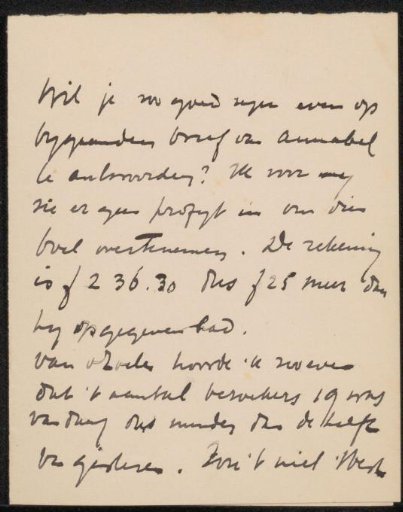 Wil je zoo goed zijn even op
bijgaanden brief van Annabel
te antwoorden? Ik voor mij
zie er geen profyt in om dien
boel overtenemen. De rekening
is f 236.30 dus f 25 meer dan
hij opgegeven had.
Van hoorde ik zooeven
dat 't aantal bezoekers 19 was
vandaag dus minder dan de helft
van gisteren. 't niet